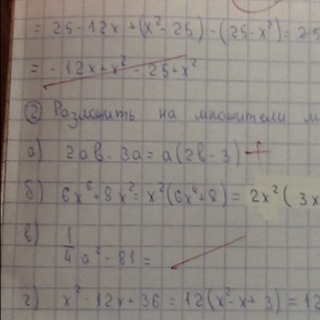 = 25 - 12x + (x² - 25) - (25 - x²) = 25
= - 12x + x² - 25 + x²
② Разложить на множители м
а) 2ab - 3a = a(2b - 3) +
б) 6x⁶ + 8x² = x²(6x⁴ + 8) = 2x²( 3x
в) 1/4 a² - 81 =
г) x² - 12x + 36 = 12(x² - x + 3) = 12